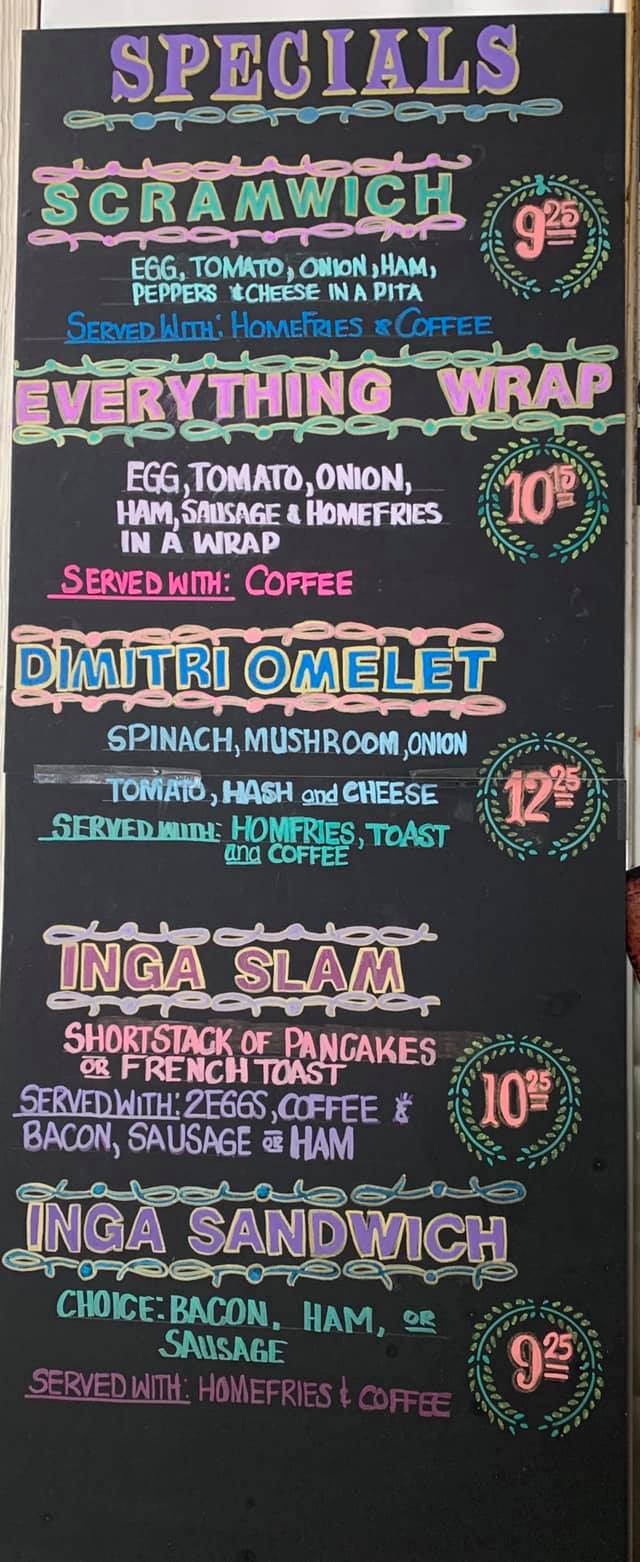 SPECIALS
SCRAMWICH
9.25
EGG, TOMATO, ONION, HAM,
PEPPERS & CHEESE IN A PITA
SERVED WITH: HOMEFRIES & COFFEE
EVERYTHING WRAP
EGG, TOMATO, ONION,
10.15
HAM, SAUSAGE & HOMEFRIES
IN A WRAP
SERVED WITH: COFFEE
DIMITRI OMELET
SPINACH, MUSHROOM, ONION
TOMATO, HASH and CHEESE
12.25
SERVED WITH: HOMFRIES, TOAST
and COFFEE
INGA SLAM
SHORTSTACK OF PANCAKES
OR FRENCH TOAST
SERVED WITH: 2 EGGS, COFFEE &
10.25
BACON, SAUSAGE OR HAM
INGA SANDWICH
CHOICE: BACON, HAM, OR
SAUSAGE
9.25
SERVED WITH: HOMEFRIES & COFFEE